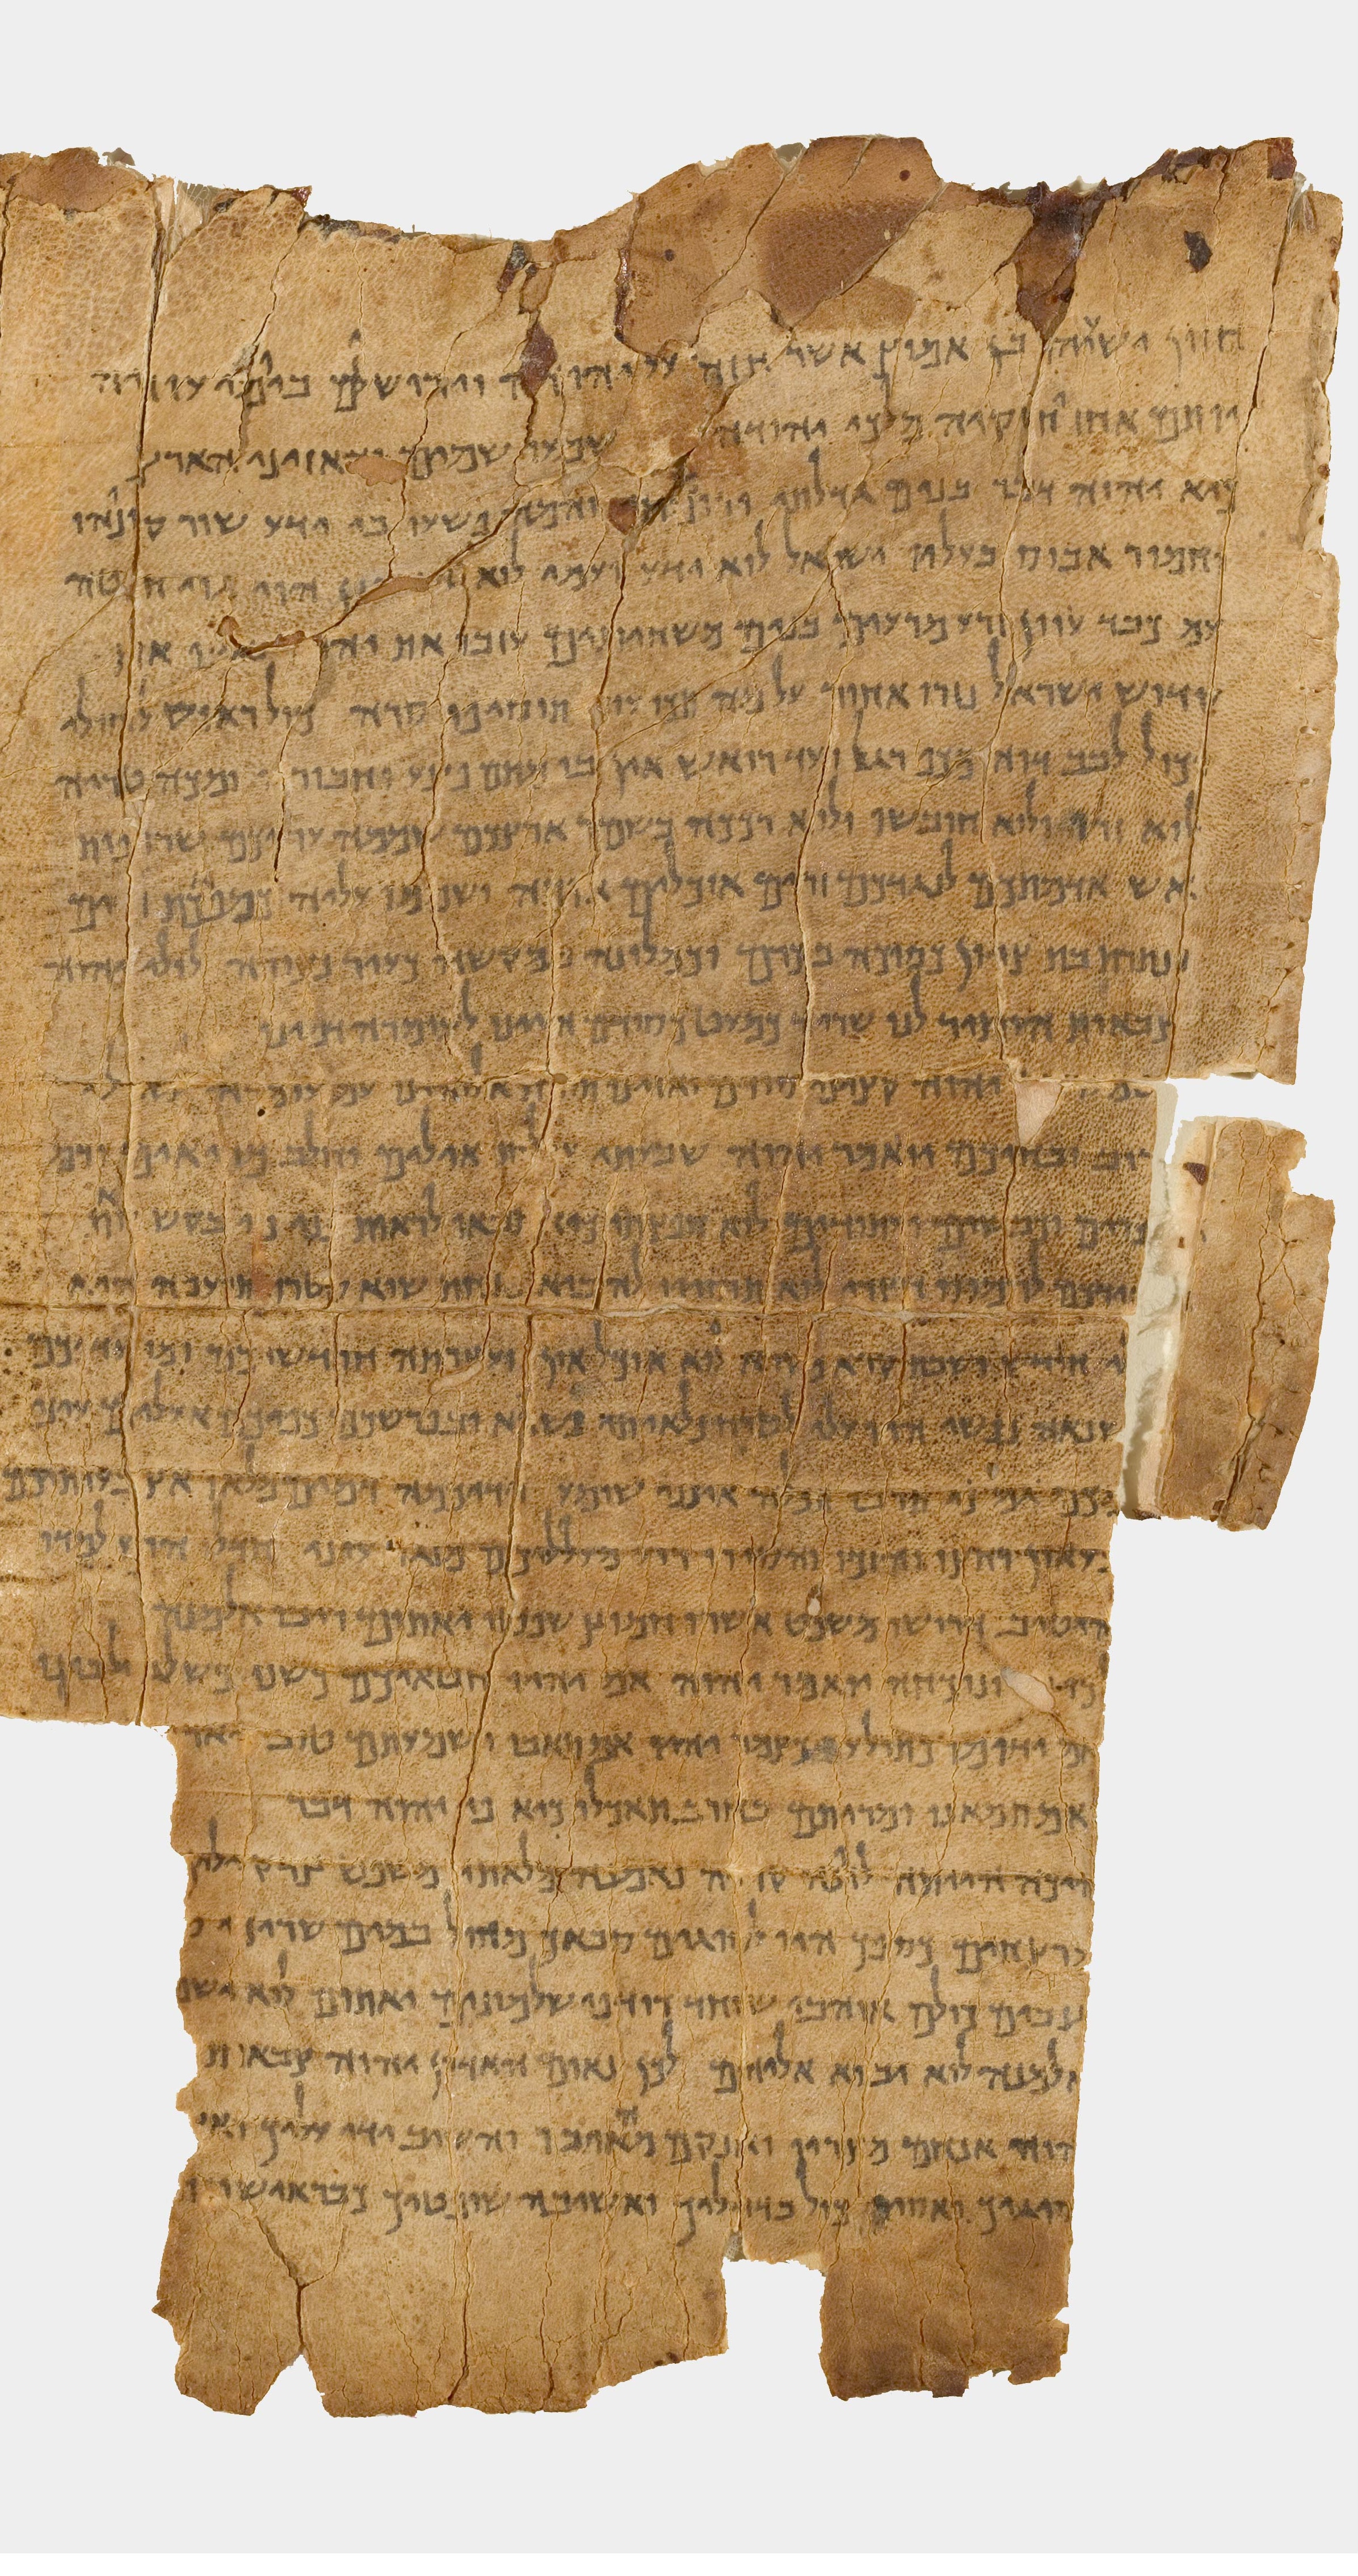 חזון ישעיהו בן אמוץ אשר חזה על יהודה וירושלים ביומי עוזיה
יותם אחז יחזקיה מלכי יהודה שמעו שמים והאזינו הארץ
כיא יהוה דבר בנים גדלתי ורוממתי והמה פשעו בי ידע שור קוניהו
וחמור אבוס בעליו ישראל לוא ידע ועמי לוא הוי גוי חוטה
עם כבד עוון זרע מרעים בנים משחיתים עזבו את יהוה את
קדוש ישראל נזרו אחור על מה תכו עוד תוסיפו סרה כול ראוש לחולי
וכול לבב דוה מכף רגל ועד רואש אין בו מתם פצע וחבורה ומכה טריה
לוא זרו ולוא חובשו ולוא רככה בשמן ארצכם שממה עריכם שרופות
אש אדמתכם לנגדכם זרים אוכלים אותה ושממו עליה כמפכת זרים
ונתרת בת ציון כסוכה בכרם וכמלונה במקשה כעיר נצורה לולי יהוה
צבאות הותיר לנו שריד כמעט כסודם היינו לעומרה דמינו
יהוה קציני סודם והאזינו תורת אלוהינו עם עומרה למה לי
רוב זבחיכם יואמר יהוה שבעתי עולות אילים וחלב מריאים ודם
פרים וכבשים ועתודים לוא חפצתי כיא תבאו לראות פני מי בקש זאת
מידכם לרמוס חצרי לוא תוסיפו להביא מנחת שוא קטרת תועבה היא
לי חודש ושבת קרא מקרא לוא אוכל און ועצרתה חודשיכם ומועדיכם
שנאה נפשי היו עלי לטרח נלאיתי נשא ובפרשכם כפיכם אעלים עיני
מכם גם כי תרבו תפלה אינני שומע ידיכמה דמים מלאו אצבעותיכם
בעאון רחצו והזכו והסירו רוע מעלליכם מנגד עיני חדלו הרע למדו
היטיב דרושו משפט אשרו חמוץ שפטו יאתום ריבו אלמנה
לכו ונוכחה יואמר יהוה אם יהיו חטאיכם כשני כשלג ילבינו
אם יאדימו כתולע כצמר יהיו אם תאבו ושמעתם טוב
אם תמאנו ומריתם בחרב תאכלו כיא פי יהוה דבר
איכה הייתה לזונה קריה נאמנה מלאתי משפט צדק ילין
מרצחים כספך היו לסגים סבאך מהול במים שריך
גנבים כולם אוהבי שוחד רודפי שלמונים יאתום לוא
אלמנה לוא יבוא אליהם לכן נואם האדון יהוה צבאות
הוי אנחם מצריו ואנקם מאויבו והשיב ידי עליך
סיגיך ואסיר כול בדיליך ואשיבה שופטיך כבראישונה